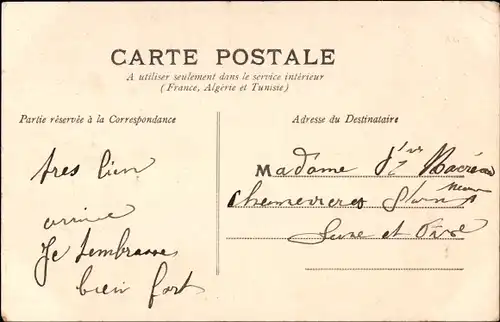 CARTE POSTALE
A utiliser seulement dans le service intérieur
(France, Algérie et Tunisie)
Partie réservée à la Correspondance
Adresse du Destinataire
très bien
arrivée
Je t'embrasse
bien fort
Madame
Seine et Oise